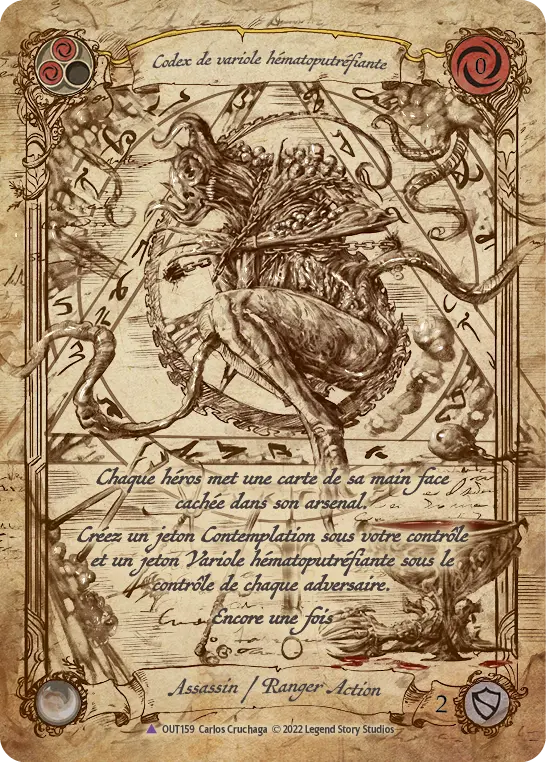 Codex de variole hématoputréfiante
0
Chaque héros met une carte de sa main face
cachée dans son arsenal.
Creez un jeton Contemplation sous votre contrôle
et un jeton Variole hématoputréfiante sous le
contrôle de chaque adversaire.
Encore une fois
Assassin / Ranger Action
2
OUT159 Carlos Cruchaga © 2022 Legend Story Studios